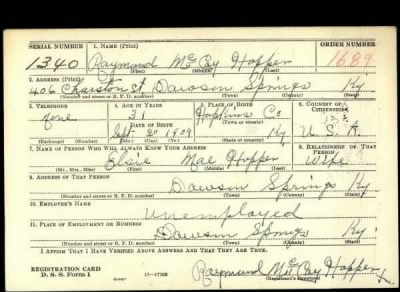 SERIAL NUMBER 1. NAME (Print) ORDER NUMBER
1340 Raymund McCoy Hopper 1689
(First) (Middle) (Last)
2. ADDRESS (Print)
406 Charston St. Dawson Springs Ky.
(Number and street or R. F. D. number) (Town) (County) (State)
3. TELEPHONE 4. AGE IN YEARS 5. PLACE OF BIRTH 6. COUNTRY OF CITIZENSHIP
None 31 Hopkins Co
DATE OF BIRTH (Town or county)
Sept 20 1909 Ky U.S.A.
(Exchange) (Number) (Mo.) (Day) (Yr.) (State or country)
7. NAME OF PERSON WHO WILL ALWAYS KNOW YOUR ADDRESS 8. RELATIONSHIP OF THAT PERSON
Elsie Mae Hopper Wife
(Mr., Mrs., Miss) (First) (Middle) (Last)
9. ADDRESS OF THAT PERSON
Dawson Springs Ky
(Number and street or R. F. D. number) (Town) (County) (State)
10. EMPLOYER'S NAME
Unemployed
11. PLACE OF EMPLOYMENT OR BUSINESS
Dawson Springs Ky
(Number and street or R. F. D. number) (Town) (County) (State)
I AFFIRM THAT I HAVE VERIFIED ABOVE ANSWERS AND THAT THEY ARE TRUE.
REGISTRATION CARD
D. S. S. Form 1 Raymund McCoy Hopper